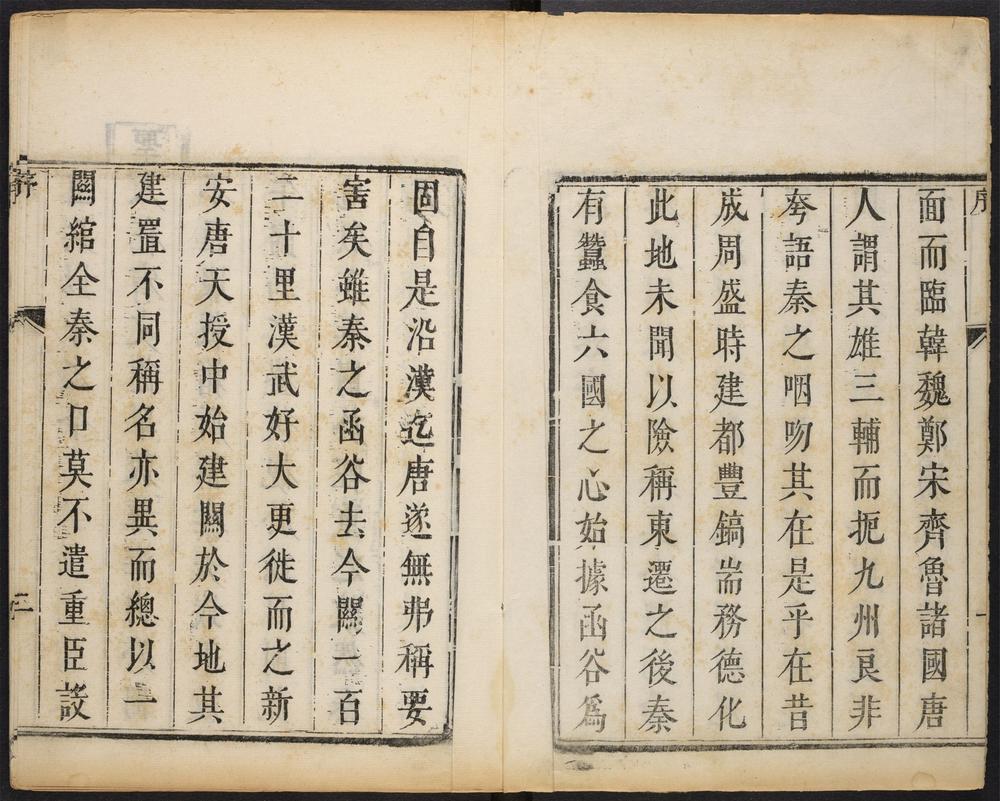 序
面而臨韓魏鄭宋齊魯諸國唐
人謂其雄三輔而扼九州良非
夸語秦之咽吻其在是乎在昔
成周盛時建都豐鎬耑務德化
此地未聞以險稱東遷之後秦
有蠶食六國之心始據函谷爲
固自是沿漢迄唐遂無弗稱要
害矣雖秦之函谷去今關一百
二十里漢武好大更徙而之新
安唐天授中始建關於今地其
建置不同稱名亦異而總以一
關綰全秦之口莫不遣重臣設
序
二